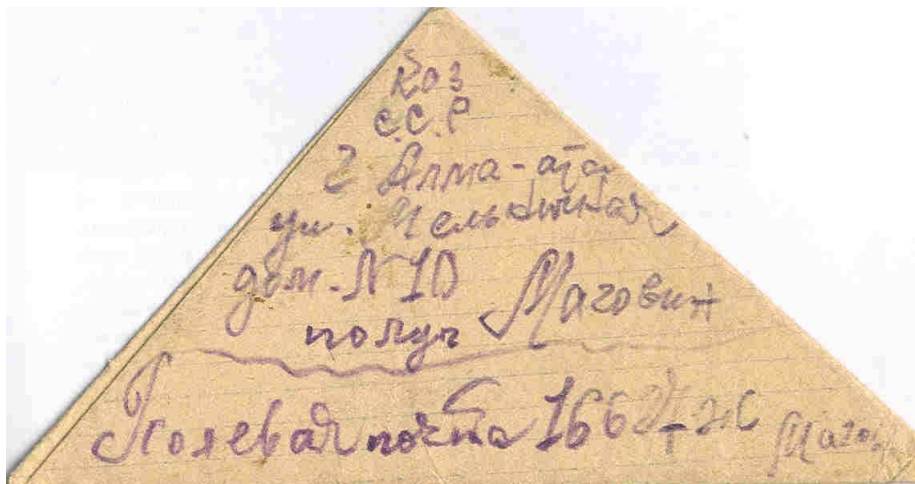 Каз
С.С.Р
г Алма-ата
ул. Мельничная
дом. N 10
получ Маговин
Полевая почта